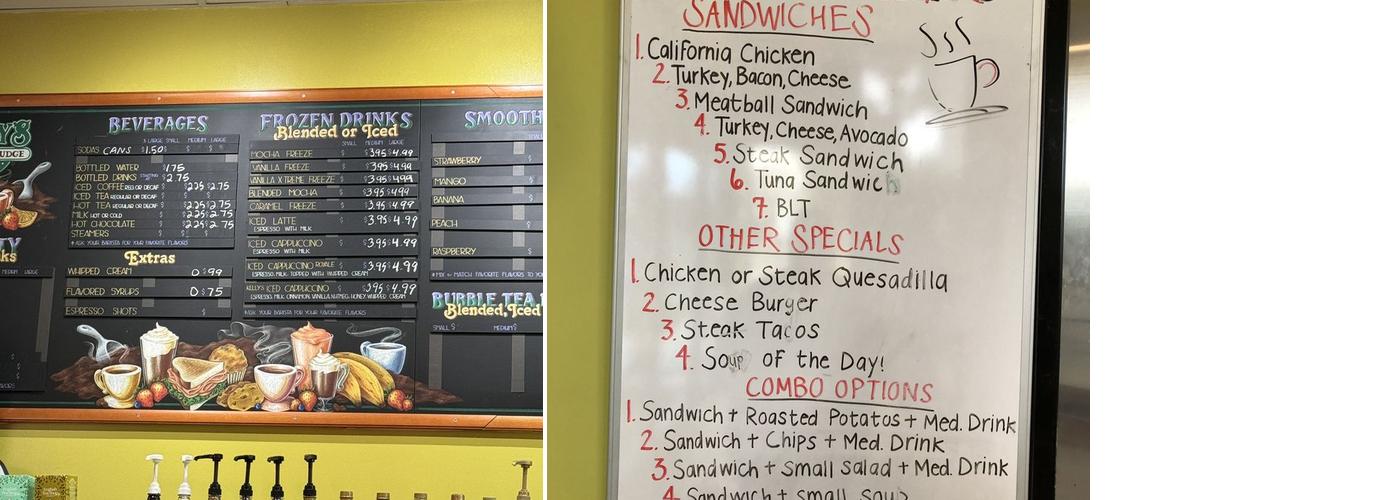 Y'S
UDGE
BEVERAGES
X LARGE SMALL MEDIUM LARGE
SODAS CANS $1.50 $ $ $
BOTTLED WATER $1.75
BOTTLED DRINKS STARTING AT $2.75
ICED COFFEE REG OR DECAF $ $2.25 $2.75
ICED TEA REGULAR OR DECAF
HOT TEA REGULAR OR DECAF $2.25 $2.75
MILK HOT OR COLD $2.25 $2.75
HOT CHOCOLATE $2.25 $2.75
STEAMERS $ $ $
ASK YOUR BARISTA FOR YOUR FAVORITE FLAVORS
Extras
WHIPPED CREAM 0 $99
FLAVORED SYRUPS 0 $75
ESPRESSO SHOTS $
FROZEN DRINKS
Blended or Iced
SMALL MEDIUM LARGE
MOCHA FREEZE $ $3.95 $4.99
VANILLA FREEZE $ $3.95 $4.99
VANILLA XTREME FREEZE $ $3.95 $4.99
BLENDED MOCHA $ $3.95 $4.99
CARAMEL FREEZE $ $3.95 $4.99
ICED LATTE $3.95 $4.99
ESPRESSO WITH MILK
ICED CAPPUCCINO $3.95 $4.99
ESPRESSO WITH MILK
ICED CAPPUCCINO ROYALE $ $3.95 $4.99
ESPRESSO, MILK, TOPPED WITH WHIPPED CREAM
KELLY'S ICED CAPPUCCINO $3.95 $4.99
ESPRESSO, MILK, CINNAMON, VANILLA, NUTMEG, HONEY WHIPPED CREAM
ASK YOUR BARISTA FOR YOUR FAVORITE FLAVORS
SMOOTH
STRAWBERRY
MANGO
BANANA
PEACH
RASPBERRY
MIX & MATCH FAVORITE FLAVORS TO YO
BUBBLE TEA
Blended, Iced
SMALL $ MEDIUM $
SANDWICHES
1. California Chicken
2. Turkey, Bacon, Cheese
3. Meatball Sandwich
4. Turkey, Cheese, Avocado
5. Steak Sandwich
6. Tuna Sandwich
7. BLT
OTHER SPECIALS
1. Chicken or Steak Quesadilla
2. Cheese Burger
3. Steak Tacos
4. Soup of the Day!
COMBO OPTIONS
1. Sandwich + Roasted Potatos + Med. Drink
2. Sandwich + Chips + Med. Drink
3. Sandwich + small salad + Med. Drink
4. Sandwich + small Soup